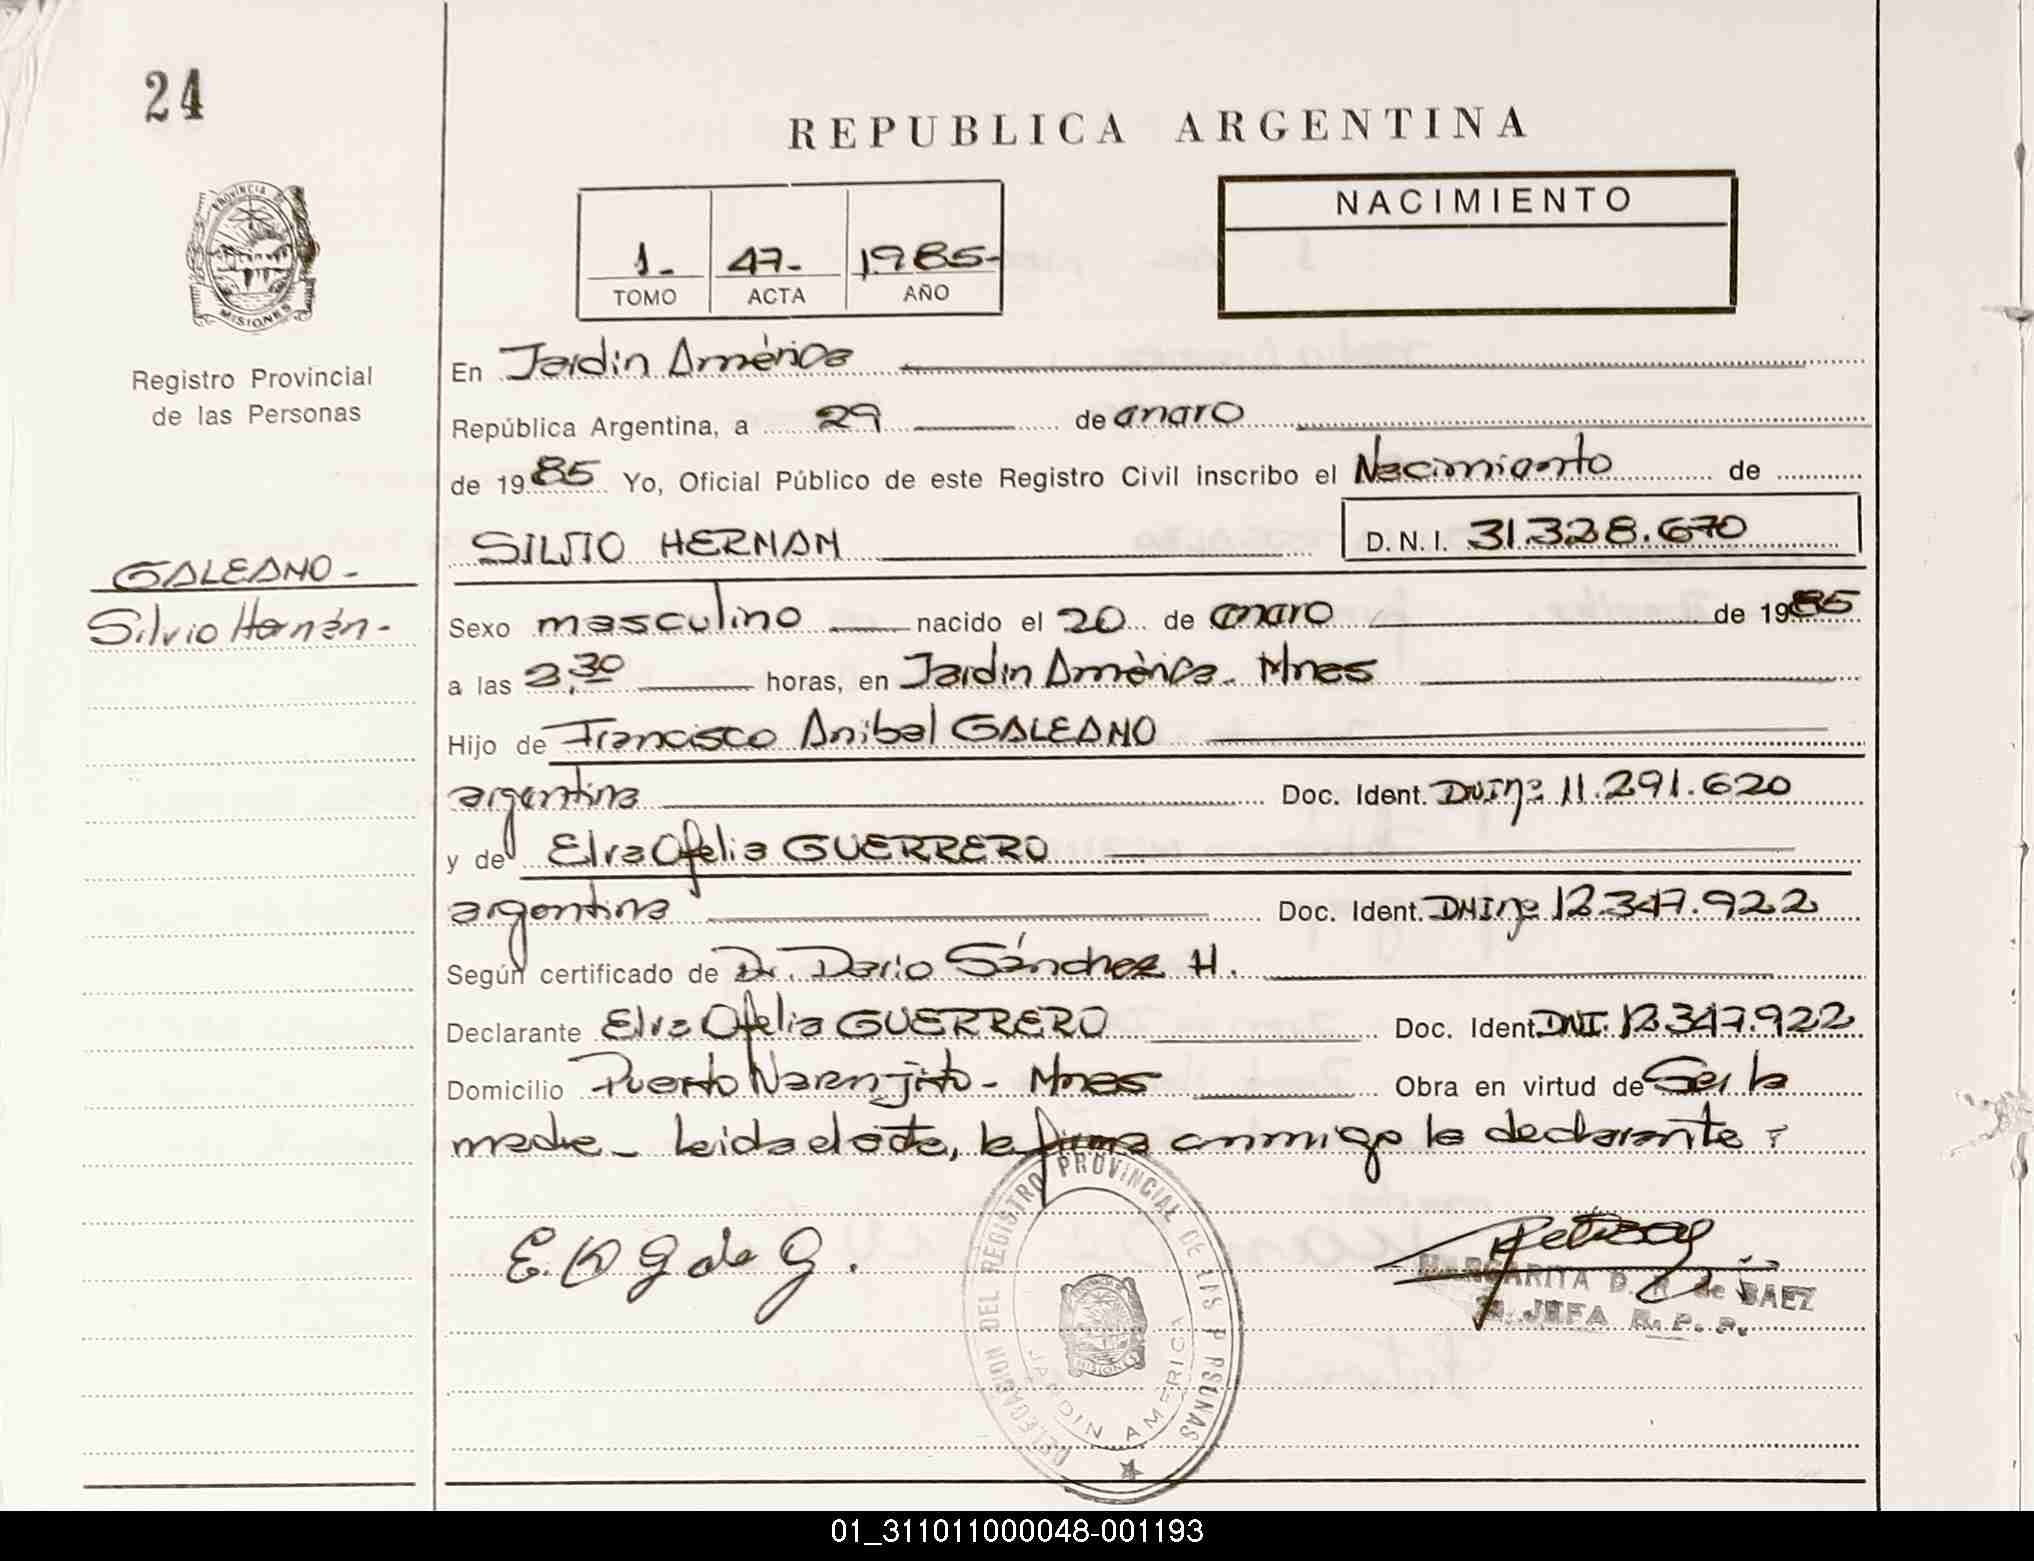 24
REPUBLICA ARGENTINA
PROVINCIA DE
MISIONES
Registro Provincial
de las Personas
1- 47- 1985-
TOMO ACTA AÑO
NACIMIENTO
En Jardín América
República Argentina, a 29 de enero
de 1985 Yo, Oficial Público de este Registro Civil inscribo el Nacimiento de
SILVIO HERNAN D.N.I. 31.328.670
GALEANO-
Silvio Hernán-
Sexo masculino nacido el 20 de enero de 1985
a las 2,30 horas, en Jardín América- Mnes
Hijo de Francisco Anibal GALEANO
argentina Doc. Ident. DNI nº 11.291.620
y de Elva Ofelia GUERRERO
argentina Doc. Ident. DNI nº 12.347.922
Según certificado de Dr. Dario Sánchez H.
Declarante Elva Ofelia GUERRERO Doc. Ident. DNI. 12.347.922
Domicilio Puerto Naranjito- Mnes Obra en virtud de Ser la
madre- Leida el acta, la firma conmigo la declarante
E. O G de G.
MARGARITA D. R. de BAEZ
JEFA R. P. P.
DELEGACION DEL REGISTRO PROVINCIAL DE LAS PERSONAS
JARDIN AMERICA
MISIONES
01_311011000048-001193